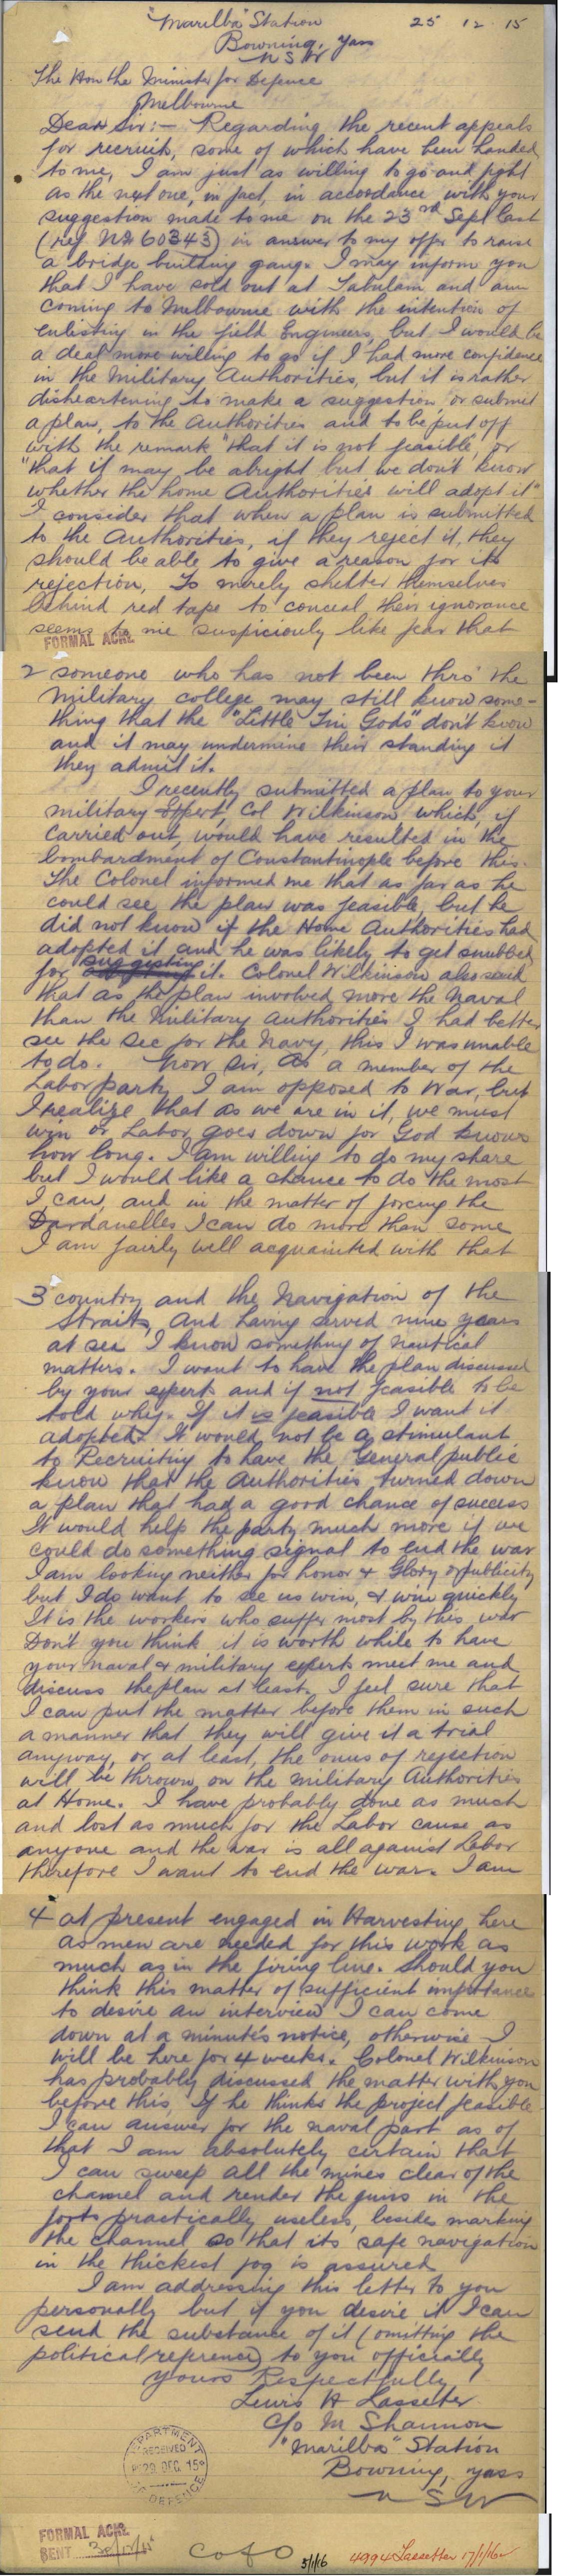 "Marilba" Station 25 12 15
Bowning, Yass
N S W
The Hon the Minister for Defence
Melbourne
Dear Sir:- Regarding the recent appeals
for recruits, some of which have been handed
to me, I am just as willing to go and fight
as the next one, in fact, in accordance with your
suggestion made to me on the 23rd Sept last
(ref 60343) in answer to my offer to raise
a bridge building gang. I may inform you
that I have sold out at Tabulam and am
coming to Melbourne with the intention of
enlisting in the field Engineers, but I would be
a deal more willing to go if I had more confidence
in the Military Authorities, but it is rather
disheartening to make a suggestion, or submit
a plan, to the Authorities and to be put off
with the remark "that it is not feasible" or
"that it may be alright but we don't know
whether the home Authorities will adopt it"
I consider that when a plan is submitted
to the Authorities, if they reject it, they
should be able to give a reason for its
rejection, To merely shelter themselves
behind red tape to conceal their ignorance
seems to me suspiciously like fear that
FORMAL ACK.
2 someone who has not been thro' the
Military college may still know some-
thing that the "Little Tin Gods" don't know
and it may undermine their standing if
they admit it.
I recently submitted a plan to your
military Expert, Col Wilkinson which, if
carried out, would have resulted in the
bombardment of Constantinople before this.
The Colonel informed me that as far as he
could see the plan was feasible, but he
did not know if the Home Authorities had
adopted it and he was likely to get snubbed
for suggesting it. Colonel Wilkinson also said
that as the plan involved more the Naval
than the Military Authorities I had better
see the Sec for the Navy, this I was unable
to do. Now Sir, As a member of the
Labor party, I am opposed to War, but
I realize that as we are in it, we must
win or Labor goes down for God knows
how long. I am willing to do my share
but I would like a chance to do the most
I can, and in the matter of forcing the
Dardanelles I can do more than some
I am fairly well acquainted with that
3 country and the Navigation of the
Straits, And having served nine years
at sea I know something of nautical
matters. I want to have the plan discussed
by your experts and if not feasible to be
told why. If it is feasible I want it
adopted. It would not be a stimulant
to Recruiting to have the General public
know that the Authorities turned down
a plan that had a good chance of success
It would help the party much more if we
could do something signal to end the war
I am looking neither for honor & Glory or publicity
but I do want to see us win, & win quickly
It is the workers who suffer most by this war
Don't you think it is worth while to have
your naval & military experts meet me and
discuss the plan at least. I feel sure that
I can put the matter before them in such
a manner that they will give it a trial
anyway, or at least, the onus of rejection
will be thrown on the Military Authorities
at Home. I have probably done as much
and lost as much for the Labor cause as
anyone and the war is all against Labor
therefore I want to end the war. I am
4 at present engaged in Harvesting here
as men are needed for this work as
much as in the firing line. Should you
think this matter of sufficient importance
to desire an interview I can come
down at a minute's notice, otherwise I
will be here for 4 weeks. Colonel Wilkinson
has probably discussed the matter with you
before this, If he thinks the project feasible
I can answer for the naval part as of
that I am absolutely certain that
I can sweep all the mines clear of the
channel and render the guns in the
forts practically useless, besides marking
the channel so that its safe navigation
in the thickest fog is assured
I am addressing this letter to you
personally but if you desire it I can
send the substance of it (omitting the
political reference) to you officially
yours Respectfully
Lewis H Lasseter
c/o M Shannon
"Marilba" Station
Bowning, Yass
N S W
DEPARTMENT
RECEIVED
29 DEC 15
DEFENCE
FORMAL ACK.
SENT 30/12/15
C of O 3/1/16 4994 Lassetter 17/1/16